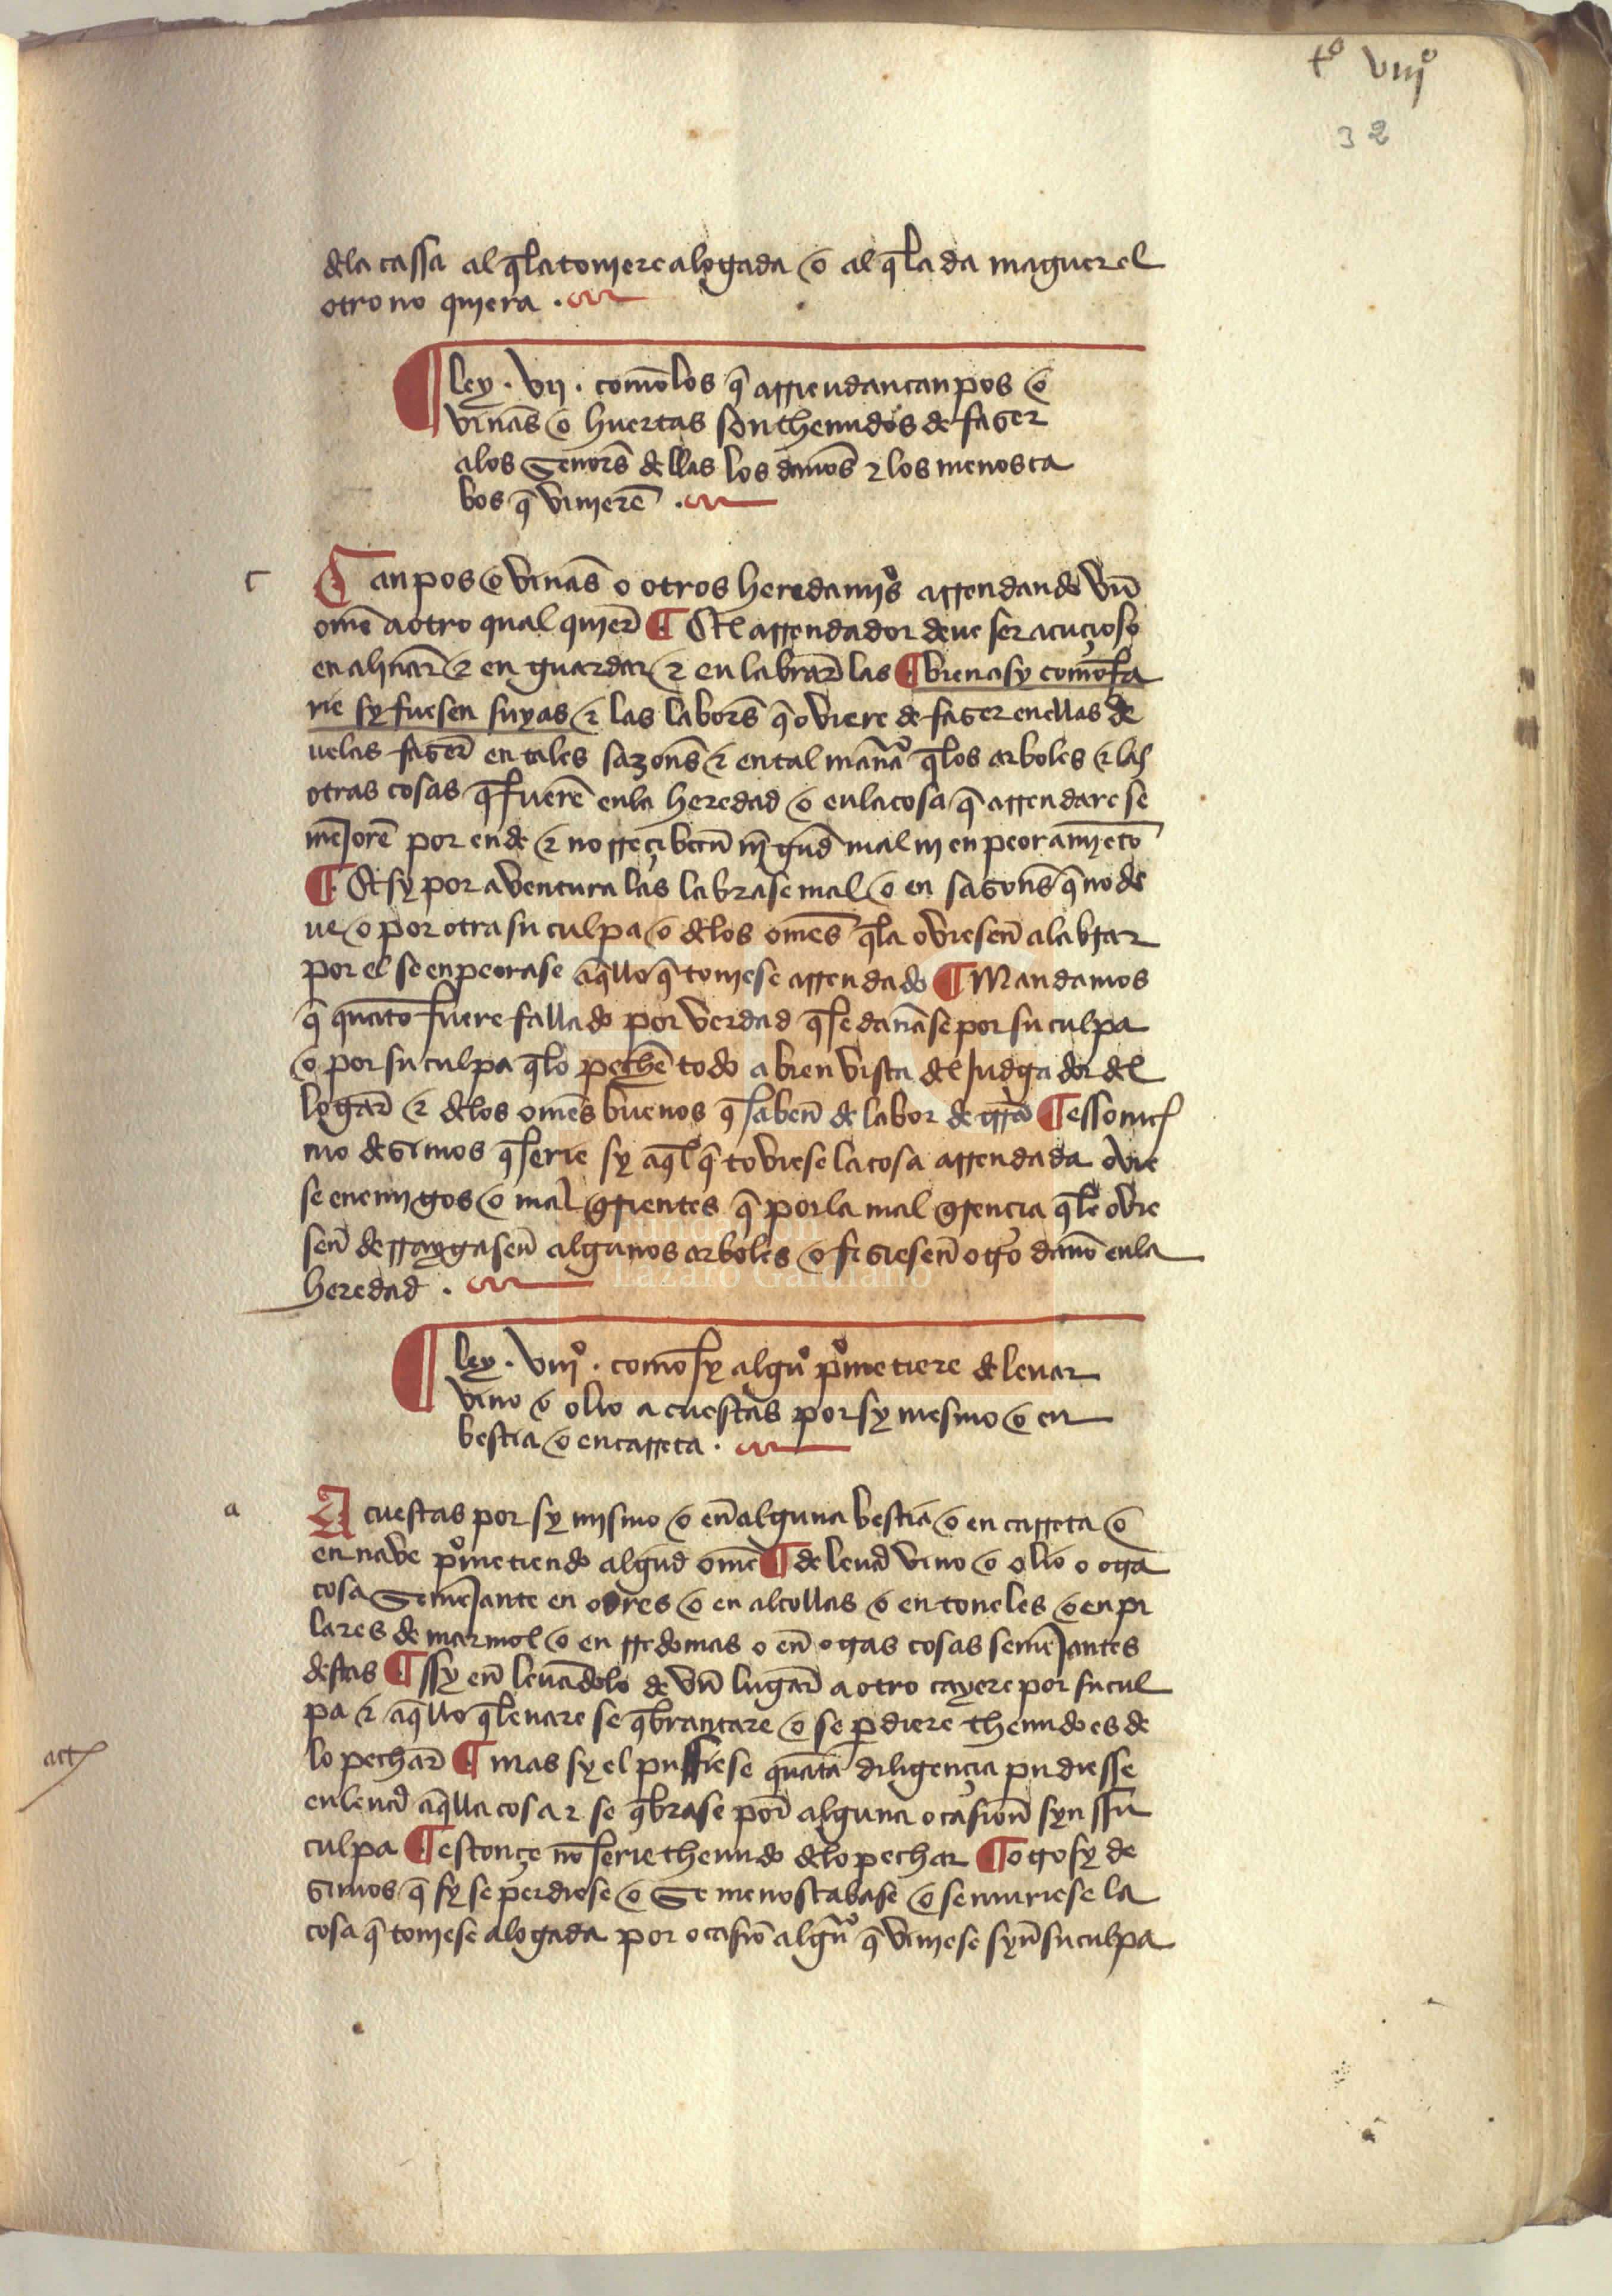 tº viijº
32
dela cassa al q̃la toujere alogada o al q̃la da maguer el
otro no qujera .
ley . vij . comō los q̃ arriendan canpos o
vinãs o huertas son thenudos de faser
alos señors̃ dellas los danõs τ los menosca
bos q̃ vinjerẽ .
c
Canpos o vinãs o otros heredamjºs arrendando vñ
omẽ a otro qual qujer̃ ¶ El arrendador deue ser acuçioso
en aliñar̃ τ en guardar τ en labrar̃ las ¶ bien asy comō fa
rie sy fuesen suyas τ las labors̃ q̃ oviere de faser enellas de
uelas faser̃ en tales sazons̃ τ en tal manãº q̃los arboles τ las
otras cosas q̃ fuerẽ enla heredad o enla cosa q̃ arrendare se
mẽjorẽ por ende τ no rreçiban̄ nj̃gud̃ mal nj enpeoramjẽto
¶ Et sy por aventura las labrase mal o en sasons̃ q̃ no de
ue o por otra su culpa o delos omẽs q̃la oviesen̄ a labrar
por el se enpeorase aq̃llo q̃ toujese arrendado ¶ Mandamos
q̃ quãto fuere fallado por verdad q̃ se danãse por su culpa
o por su culpa q̃lo pechẽ todo a bien vista del judgador del
logar̃ τ delos omẽs buenos q̃ saben̄ de labor de trr̃a ¶ esso mes
mo desimos q̃ serie sy aq̃l q̃ toviese la cosa arrendada ovie
se enemjgos o mal qrientes q̃ por la mal qrençia q̃le ovie
sen̄ derraygasen̄ algunos arboles o fisiesen̄ otrº danõ enla
heredad .
ley . viijº . comō sy algũº pºmetiere de leuar
vino o olio a cuestas por sy mesmo o en
bestia o en carreta .
a
A cuestas por sy mismo o en̄ alguna bestia o en carreta o
en nave pºmetiendo algud̃ omẽ ¶ de leuar̃ vino o olio o otra
cosa semẽjante en odres o en alcollas o en toneles o en pi
lares de marmol o en rredomas o en̄ otras cosas semẽjantes
destas ¶ ssy en̄ leuãdolo de vñ lugar̃ a otro cayere por su cul
pa τ aq̃llo q̃ leuare se q̃brantare o se perdiere thenudo es de
lo pechar̃ ¶ mas sy el pussiese quãta diligençia pudiesse
en leuar̃ aq̃lla cosa τ se q̃brase por̃ alguna ocasion̄ syn ssu
act
culpa ¶ estonçe nõ serie thenudo delo pechar ¶ otrosy de
simos q̃ sy se perdiese o se menoscabase o se muriese la
cosa q̃ toujese alogada por ocasiõ algũº q̃ vinjese syn̄ su culpa